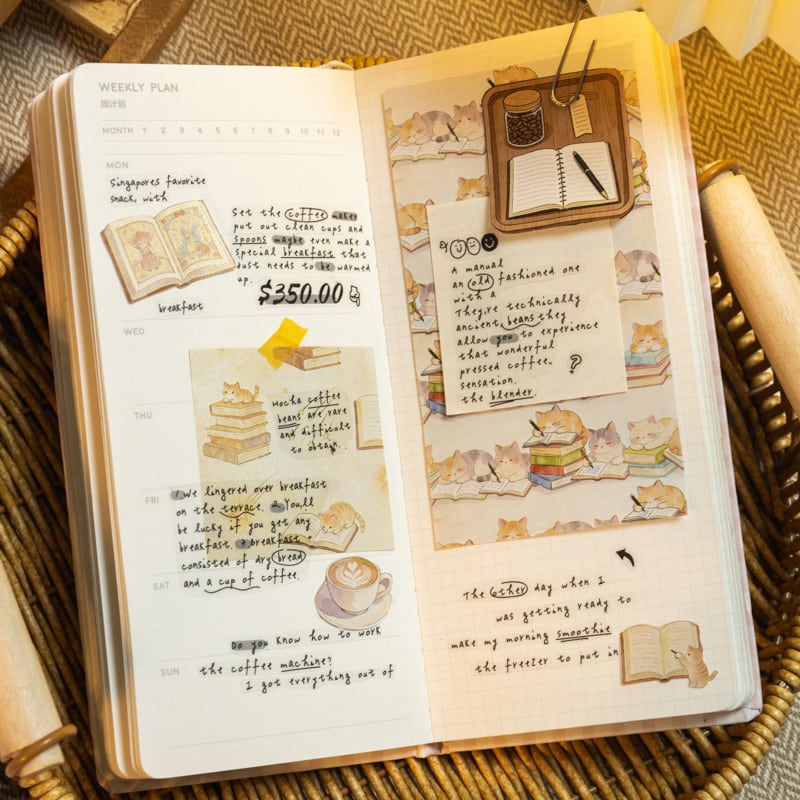 WEEKLY PLAN
周计划
MONTH 1 2 3 4 5 6 7 8 9 10 11 12
MON
Singapores favorite
snack, with
Set the coffee maker
put out clean cups and
spoons maybe even make a
special breakfast that
just needs to be warmed
up.
$350.00
breakfast
WED
THU
Mocha coffee
beans are rare
and difficult
to obtain.
FRI
1 We lingered over breakfast
on the terrace. 2 You'll
be lucky if you get any
breakfast. 3 Breakfast
consisted of dry bread
SAT
and a cup of coffee.
Do you know how to work
SUN
the coffee machine?
I got everything out of
A manual
an old fashioned one
with a
They,re technically
ancient, beans they
allow you to experience
that wonderful
pressed coffee.
sensation.
the blender.
?
The other day when I
was getting ready to
make my morning smoothie
the freezer to put in